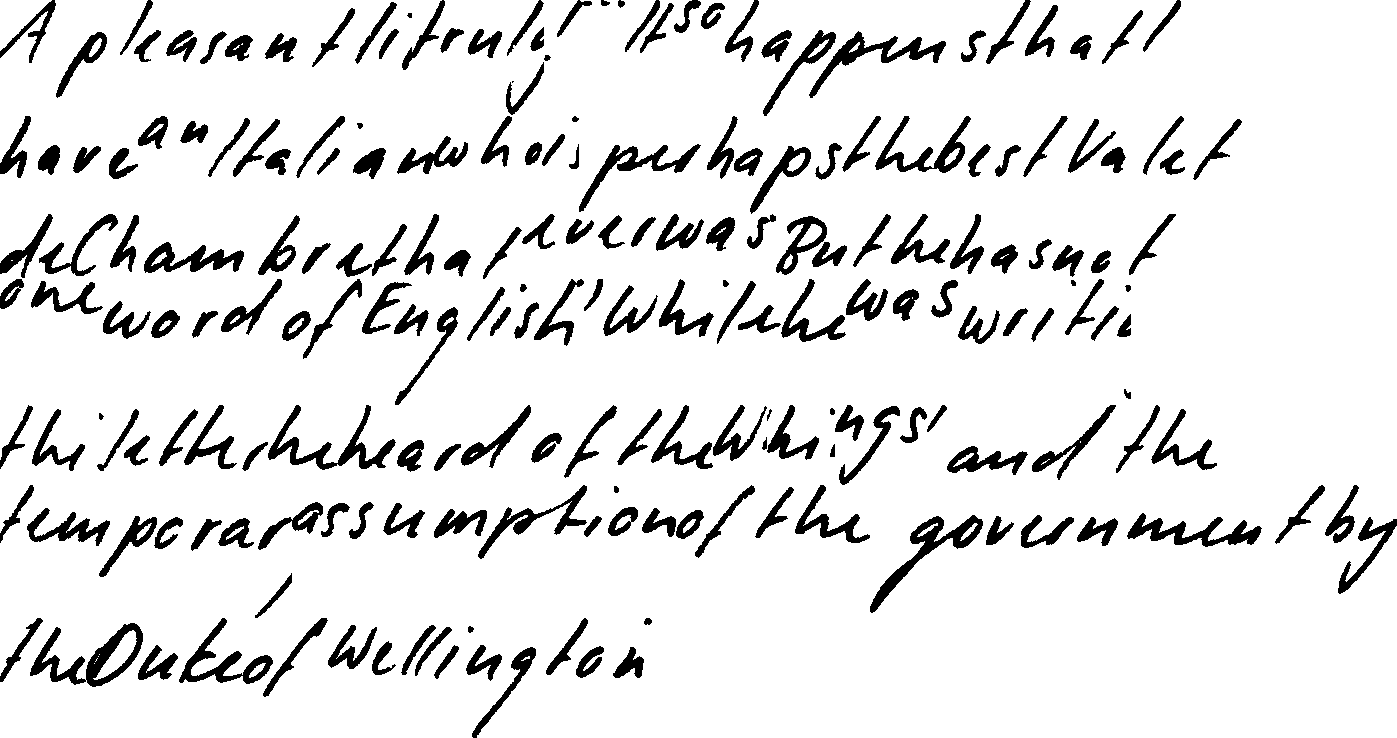 A pleasant life truly! ... It so happens that I
have an Italian who is perhaps the best Valet
de Chambre that ever was But he has not
one word of English' While he was writi
this letter he heard of the Whings' and the
temporar assumption of the government by
the Duke of Wellington